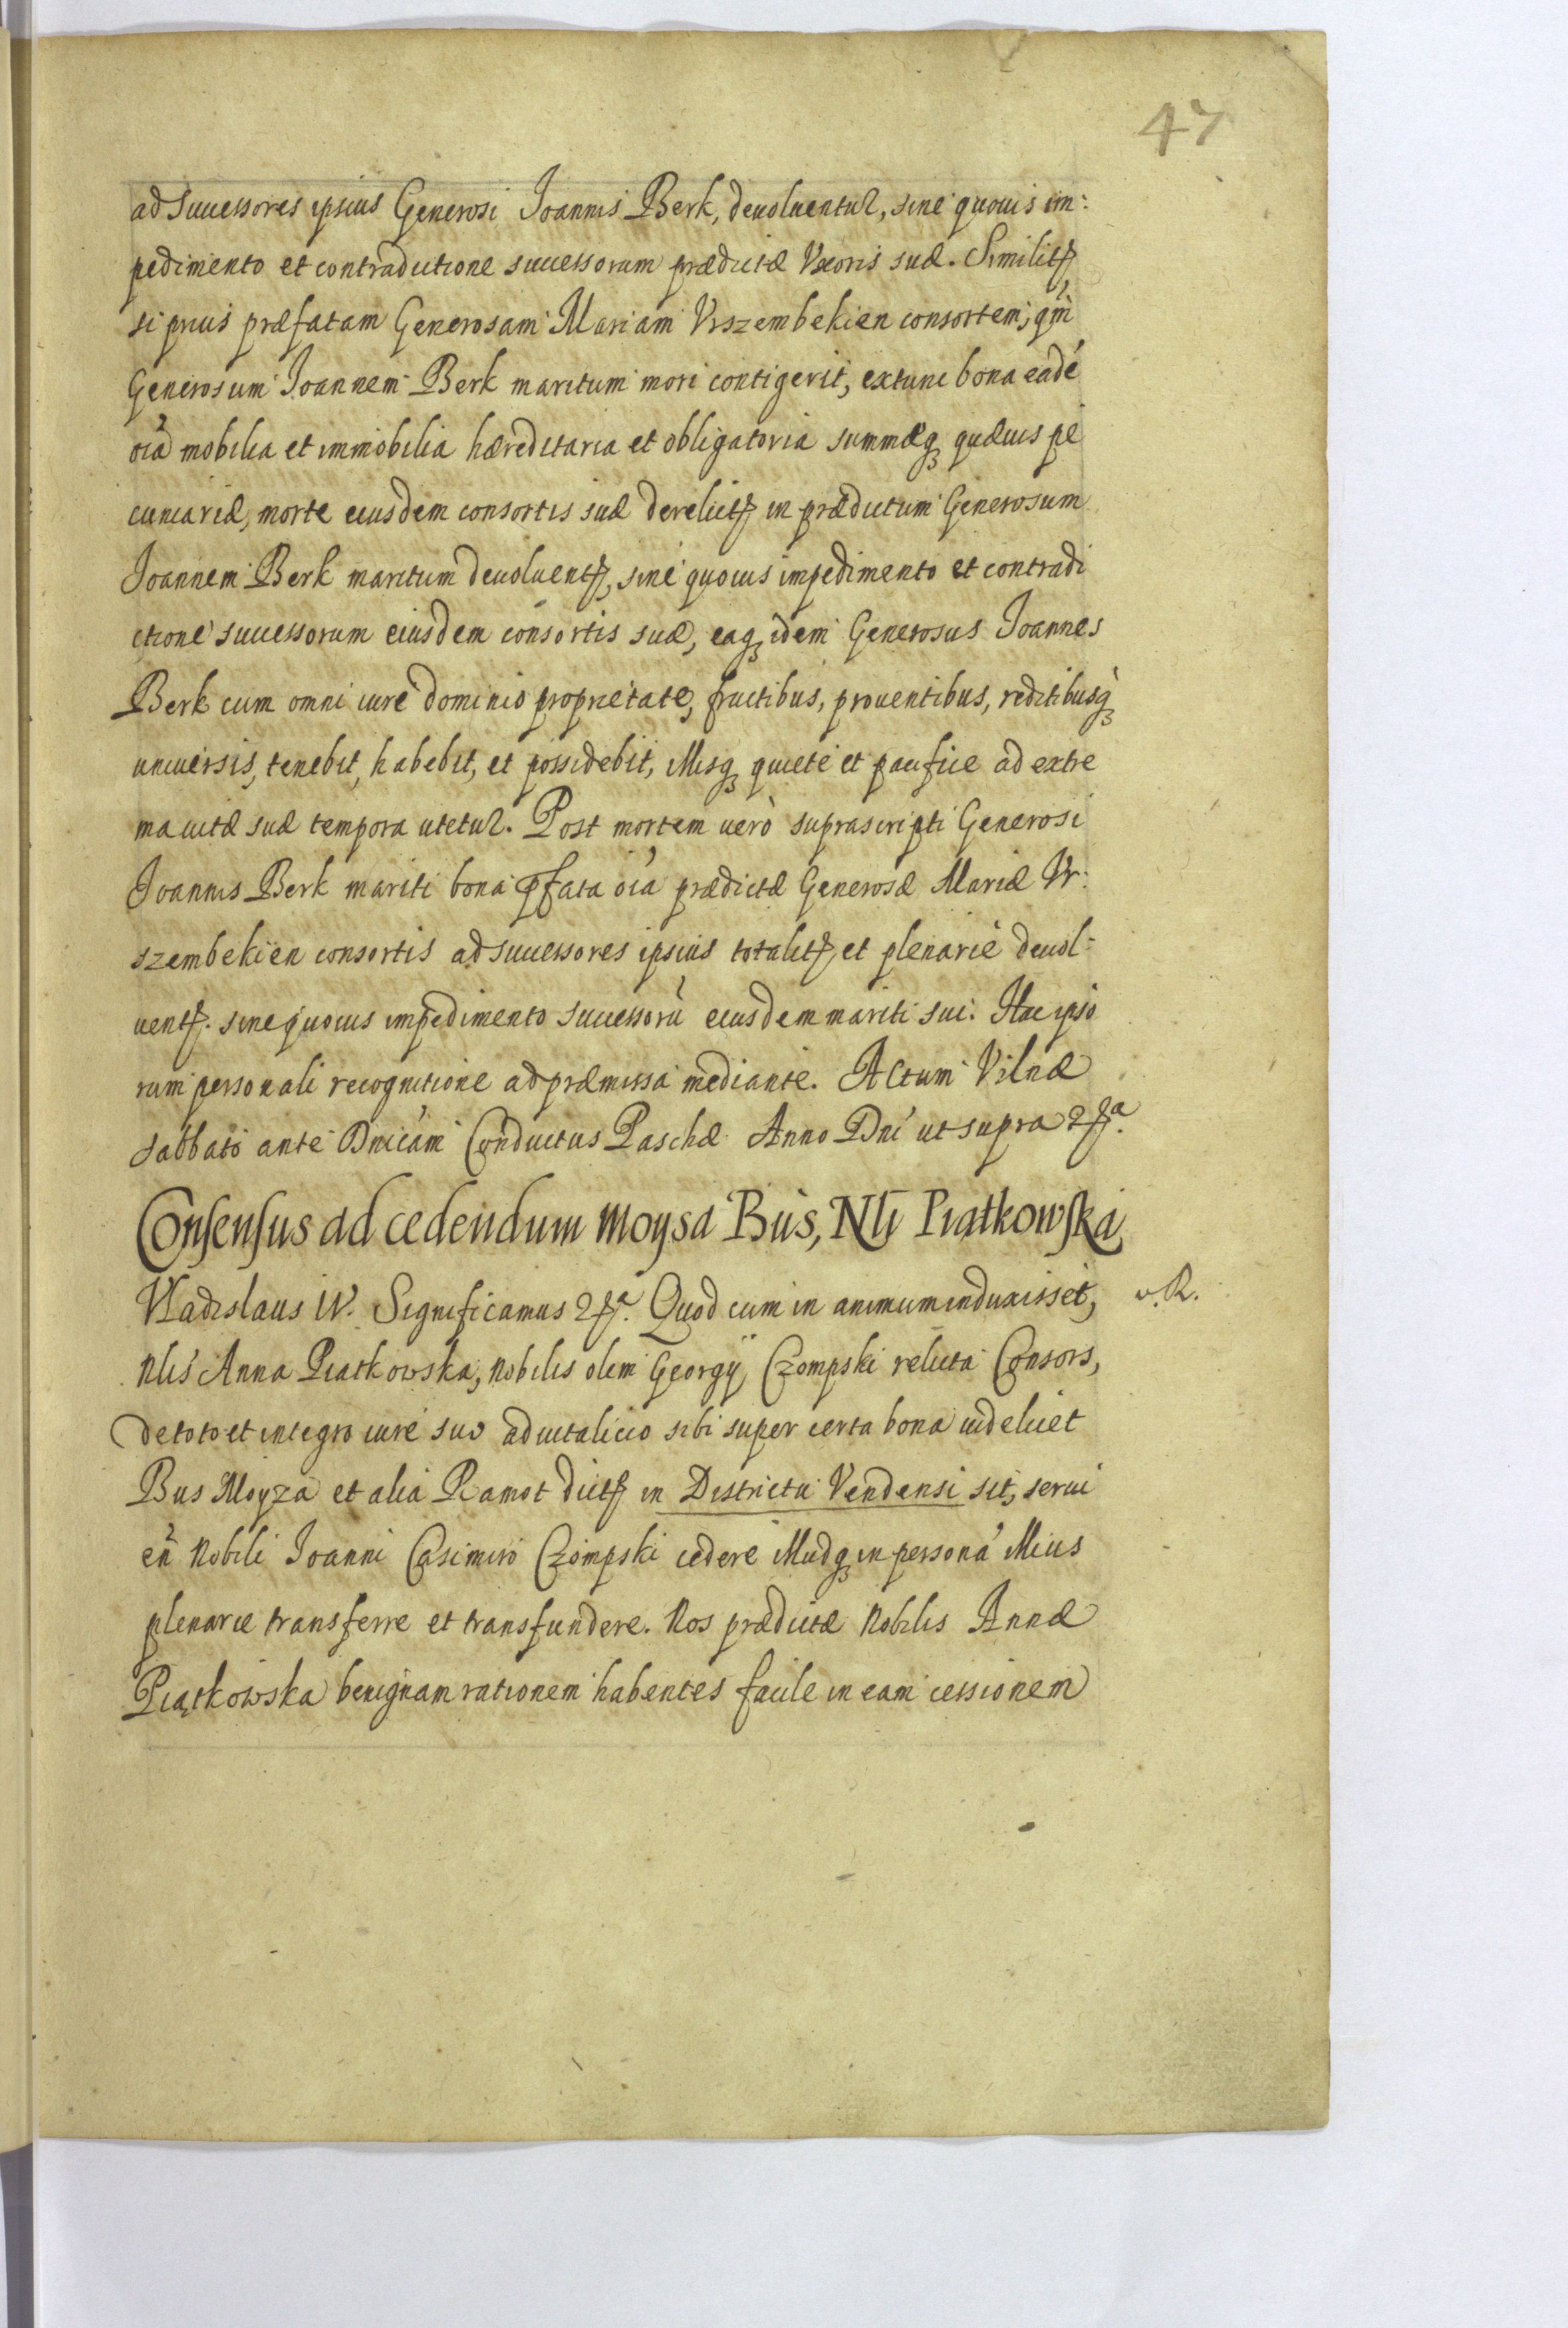 47
ad successores ipsius Generosi Joannis Berk, deuoluentur, sine quouis im:
pedimento et contradictione successorum prædictæ Vxoris suæ. Similitꝭ
si prius præfatam Generosam Mariam Vrszembekien consortem, qm̃
Generosum Joannem Berk maritum mori contigerit, extunc bona eadé
oĩa mobilia et immobilia hæreditaria et obligatoria summæqꝫ quæuis pe
cuniariæ, morte eiusdem consortis suæ derelictꝭ in prædictum Generosum
Joannem Berk maritum deuoluentꝭ, sine quouis impedimento et contradi
ctione successorum eiusdem consortis suæ, eaqꝫ idem Generosus Joannes
Berk cum omni iure dominio proprietate, fructibus, prouentibus, reditibusqꝫ
uniuersis, tenebit, habebit, et possidebit, illisqꝫ quiete et pacifice ad extre
ma uitæ suæ tempora utetur. Post mortem uerò suprascripti Generosi
Joannis Berk mariti bona p̃fata oĩa prædictæ Generosæ Mariæ Vr:
szembekien consortis ad successores ipsius totalitꝭ, et plenariè deuol-
uentꝭ. sine quouis impedimento successorũ eiusdem mariti sui. Hac ipso
rum personali recognitione ad præmissa mediante. Actum Vilnæ
sabbato ante Dnicam Conductus Paschæ Anno Dni ut supra ꝛꝭᵃ.
Consensus ad cedendum Moysa Bus, Nłi Piatkowska
Vladislaus IV. Significamus ꝛꝭᵃ. Quod cum in animum induxisset,
v. R.
Nlis Anna Piatkowska, Nobilis olim Georgij Czompski relicta Consors,
de toto et integro iure suo aduitalicio sibi super certa bona uidelicet
Bus Moyza et alia Ramot dictꝭ in Districtu Vendensi sit, serui
eñ Nobili Joanni Casimiro Czompski cedere illudqꝫ in personã illius
plenarie transferre et transfundere. Nos prædictæ Nobilis Annæ
Piątkowska benignam rationem habentes facile in eam cessionem